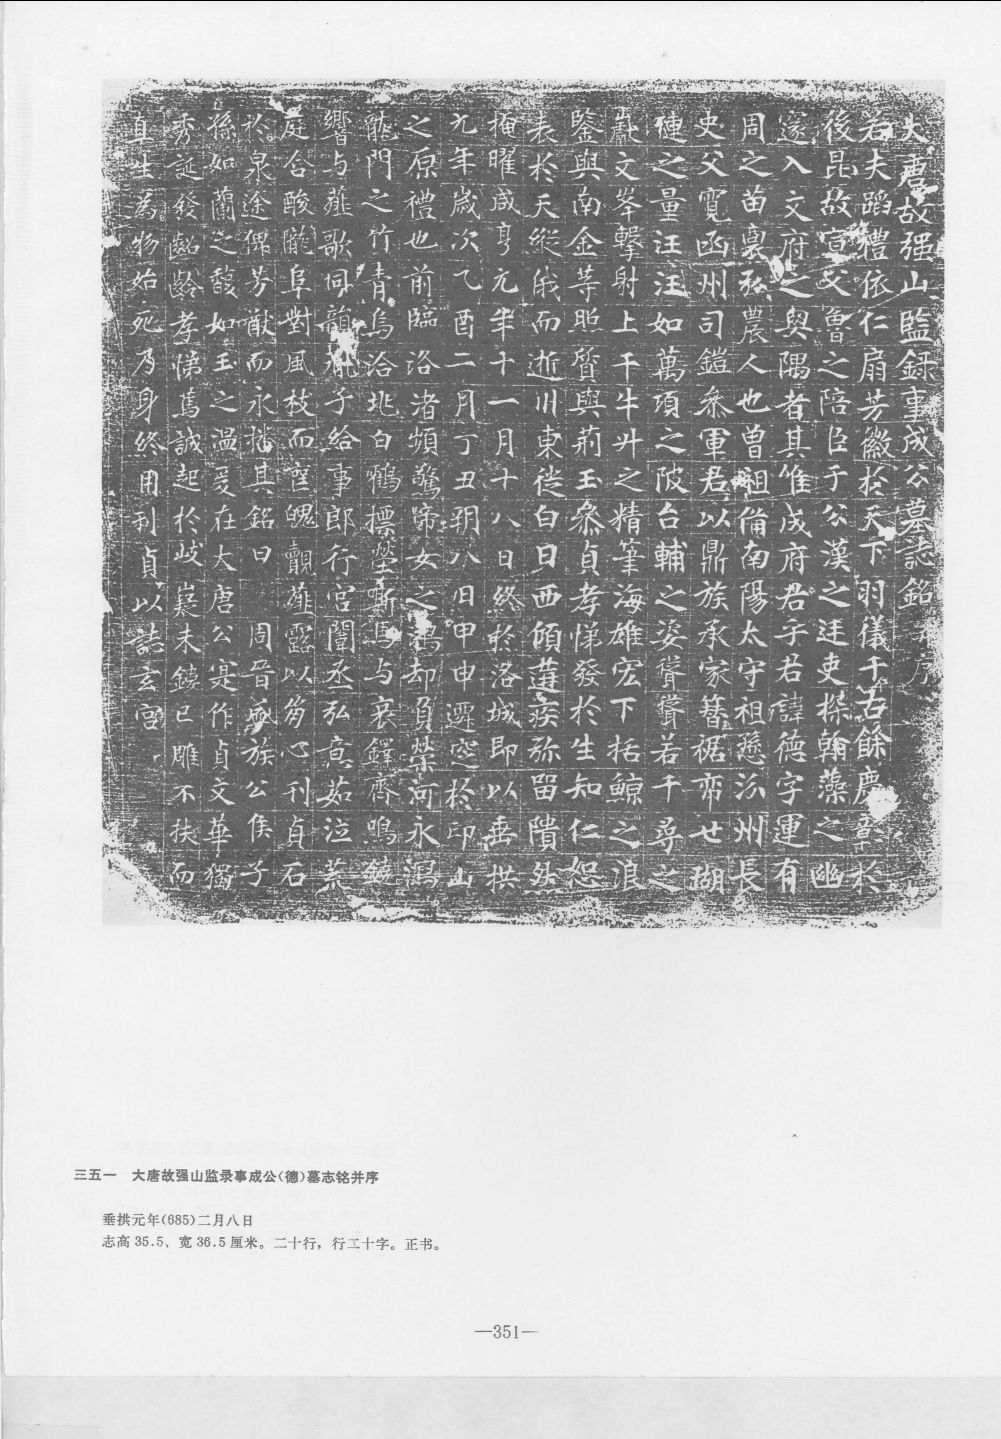 大唐故强山監錄事成公墓誌銘并序
若夫蹈禮依仁扇芳徽於天下羽儀千古餘慶章於
後昆故宣父魯之陪臣子公漢之廷吏探翰藻之幽
邃入文府之奧隅者其惟成府君乎君諱德字運有
周之苗裔弘農人也曾祖備南陽太守祖愻汾州長
史父寬函州司鎧叅軍君以鼎族承家簪裾帝世瑚
璉之量汪汪如萬頃之陂台輔之姿聳聳若千尋之
巖文峯擊射上干牛斗之精筆海雄宏下括鯨之浪
鑒與南金等照質與荊玉叅貞孝悌發於生知仁恕
表於天縱俄而逝川東徙白日西傾遘疾弥留隤然
掩曜咸亨元年十一月十八日終於洛城即以垂拱
元年歲次乙酉二月丁丑朔八日甲申遷窆於印山
之原禮也前臨洛渚頻驚蹄女之鴻却負滎河永瀉
龍門之竹青烏洽兆白鶴摽塋嘶馬与哀鐸齊鳴鐃
響与薤歌同韻 子給事郎行宮闈丞弘亮茹泣荒
庭含酸隴阜對風枝而窀魄覩薤露以傷心刊貞石
於泉途俾芳猷而永播其銘曰 周晉盛族公侯子
孫如蘭之馥如玉之溫爰在大唐公寔作貞文華獨
秀誕發齠齡孝悌焉誠起於岐嶷未鏡已雕不扶而
直生為物始死乃身終用刊貞以誌玄宮
三五一 大唐故强山监录事成公(德)墓志铭并序
垂拱元年(685)二月八日
志高 35.5、宽 36.5 厘米。二十行，行二十字。正书。
—351—